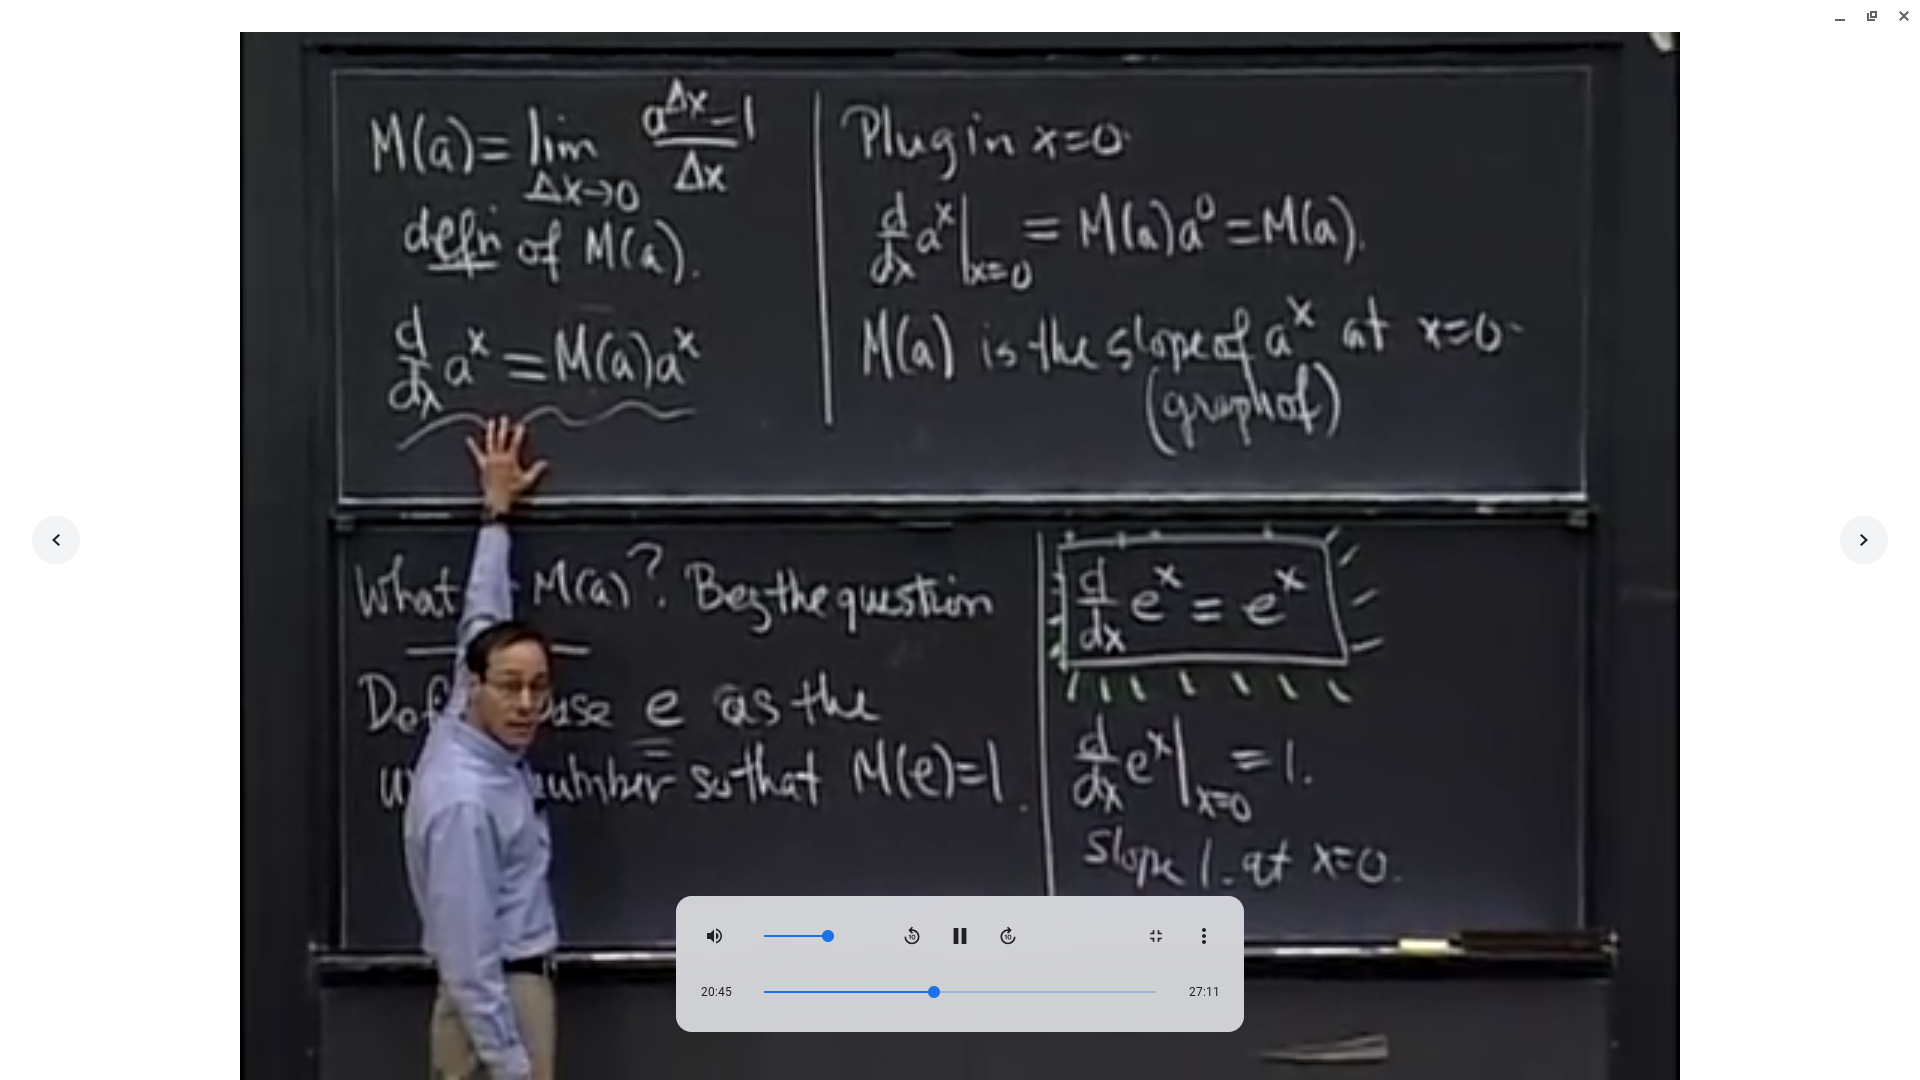 M(a) = lim Δx→0 (a^Δx − 1)/Δx
defn of M(a).
d/dx a^x = M(a)a^x
Plug in x=0.
d/dx a^x |x=0 = M(a)a^0 = M(a).
M(a) is the slope of a^x at x=0.
(graph of)
What M(a)? Beg the question
base e as the
number so that M(e)=1.
d/dx e^x = e^x
d/dx e^x |x=0 = 1.
Slope 1 at x=0.
10
10
20:45
27:11